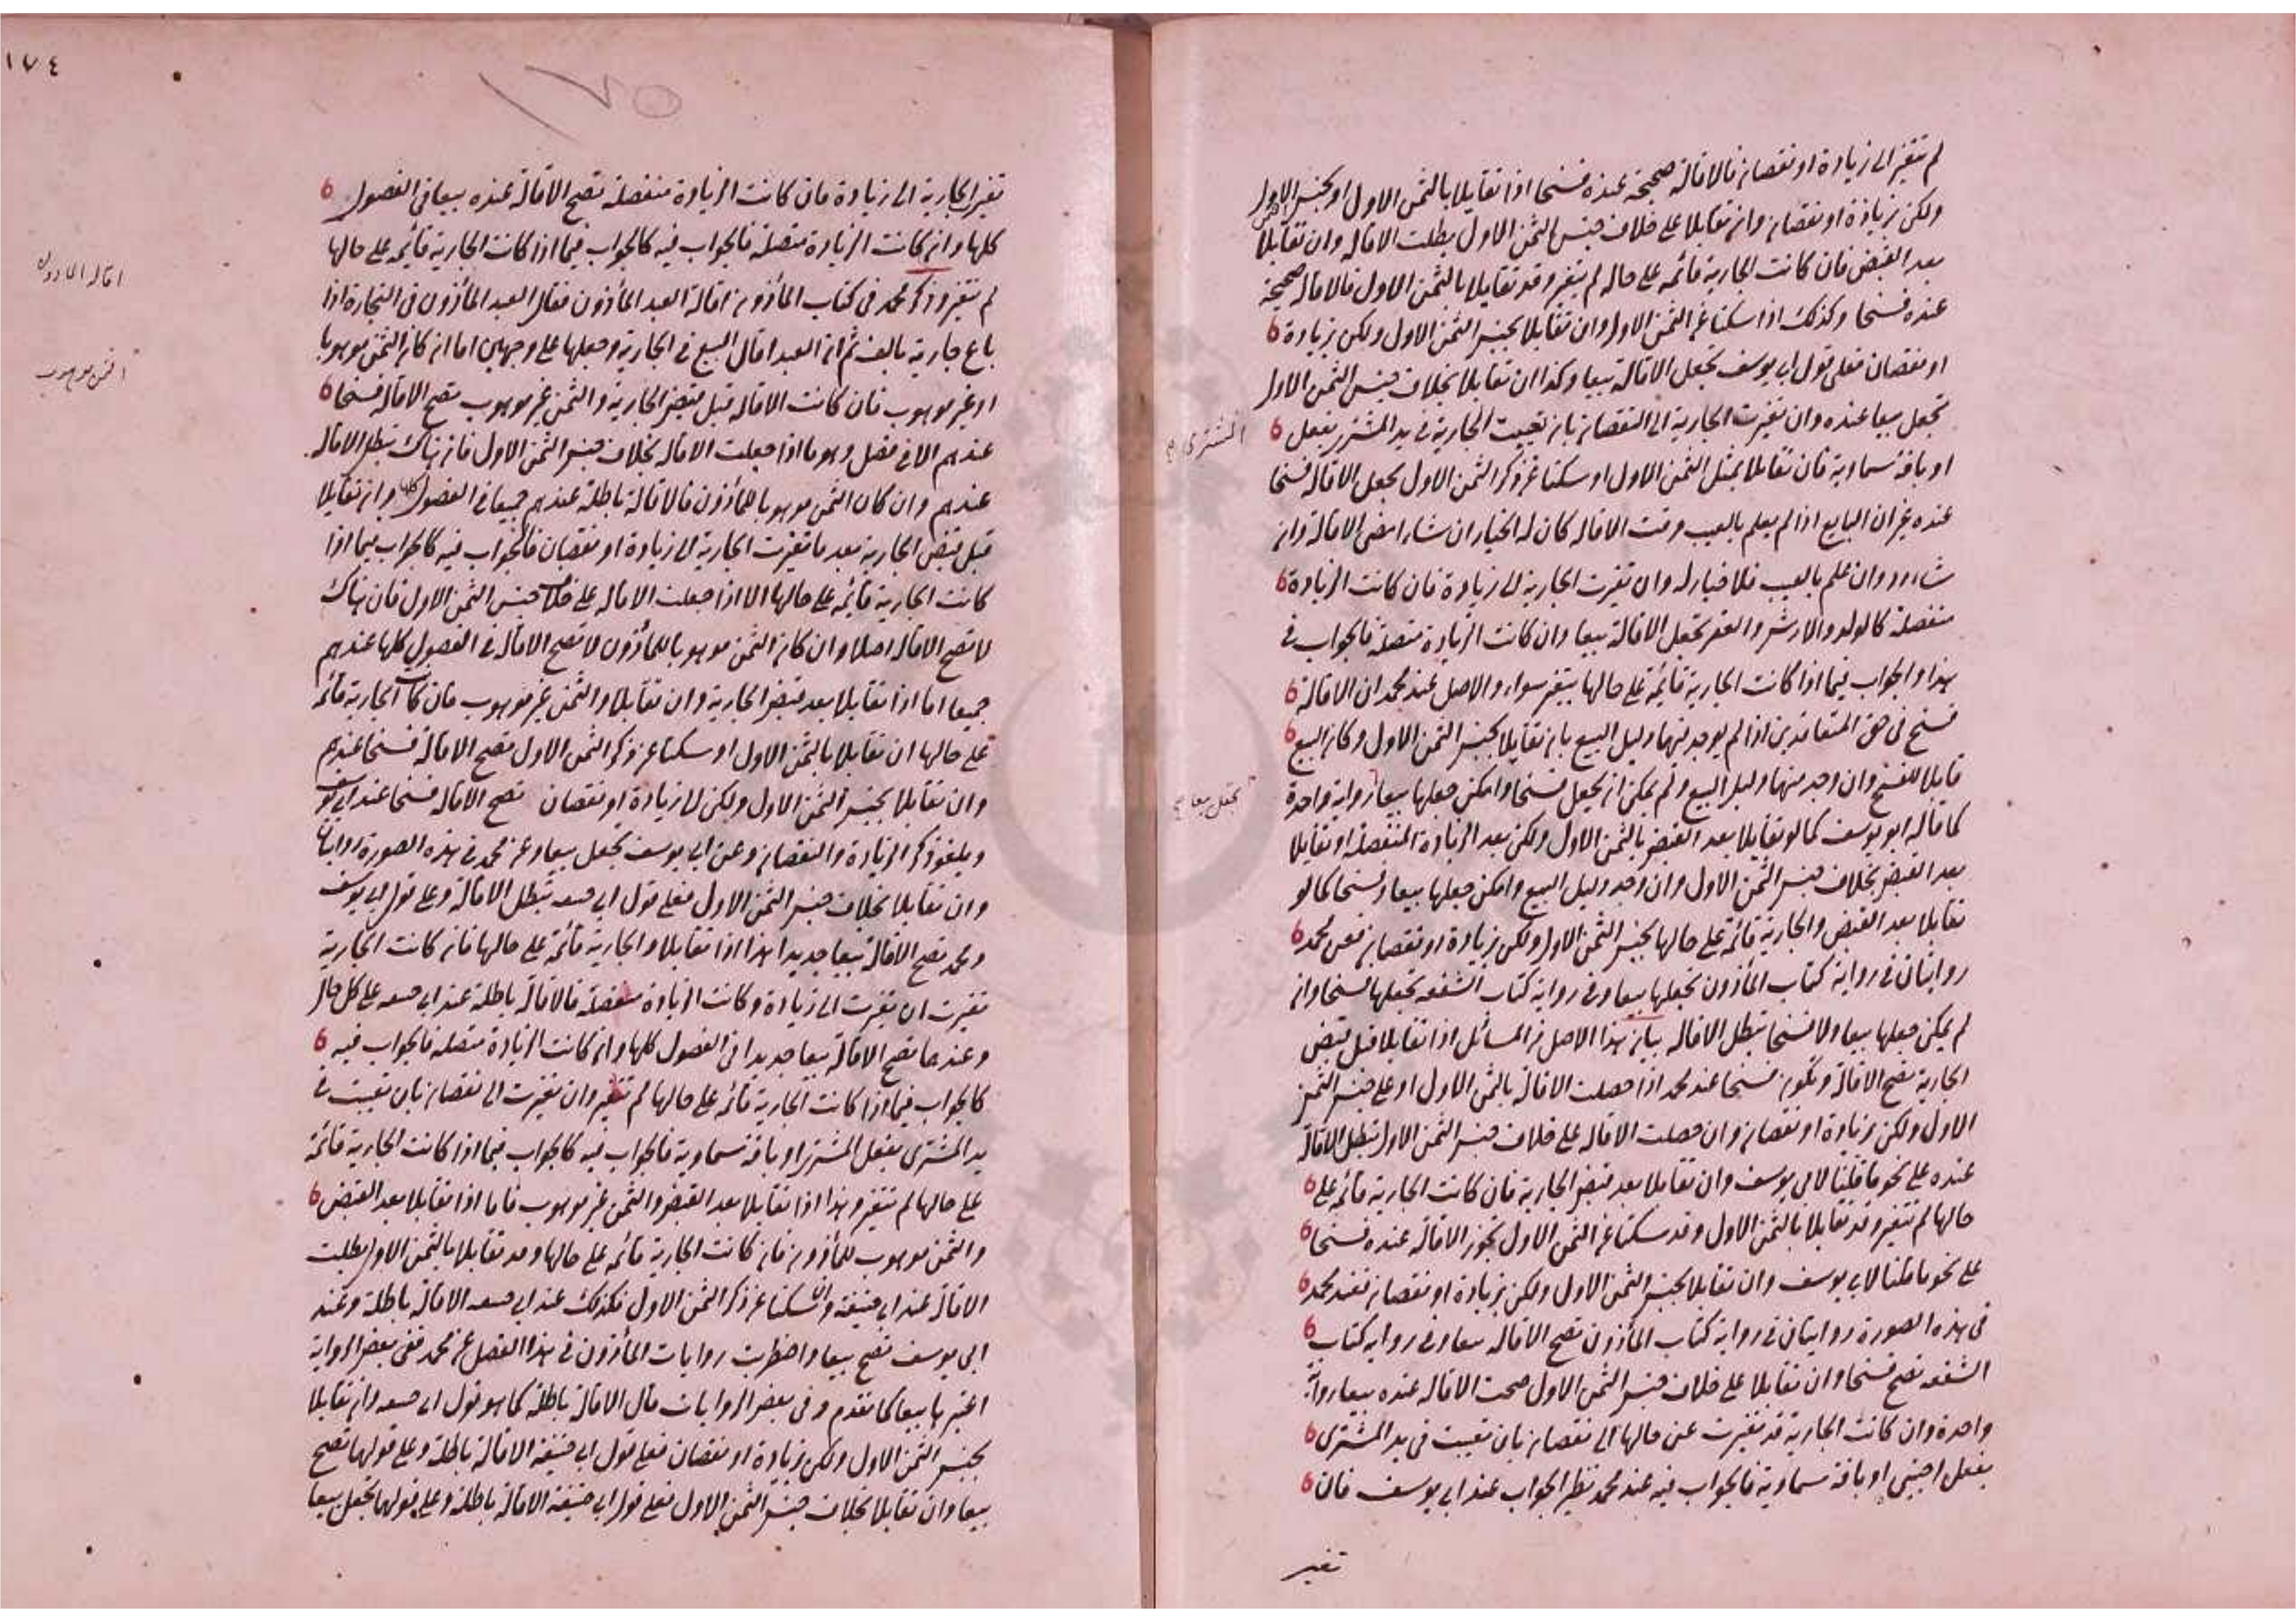 لم تتغير الى زيادة او نقصان فالاقالة صحيحة عنده فسخا اذا تقايلا بالثمن الاول او بجنس الاول
ولكن بزيادة او نقصان وان تقايلا على خلاف جنس الثمن الاول بطلت الاقالة وان تقايلا
بعد القبض فان كانت الجارية قائمة على حاله لم يتغير وقد تقايلا بالثمن الاول فالاقالة صحيحة
عنده فسخا وكذلك اذا سكتا عن الثمن الاول وان تقايلا بجنس الثمن الاول ولكن بزيادة
او نقصان فعلى قول ابي يوسف تجعل الاقالة بيعا وكذا ان تقايلا بخلاف جنس الثمن الاول
تجعل بيعا عنده وان تغيرت الجارية الى النقصان بان تعيبت الجارية في يد المشتري بفعل
المشتري
او بآفة سماوية فان تقايلا بمثل الثمن الاول او سكتا عن ذكر الثمن الاول تجعل الاقالة فسخا
عنده غير ان البايع اذا لم يعلم بالعيب وقت الاقالة كان له الخيار ان شاء امضى الاقالة وان
شاء رد وان علم بالعيب فلا خيار له وان تغيرت الجارية الى زيادة فان كانت الزيادة
منفصلة كالولد والارش والعقر تجعل الاقالة بيعا وان كانت الزيادة متصلة فالجواب في
هذا والجواب فيما اذا كانت الجارية قائمة على حالها بتغير سواء والاصل عند محمد ان الاقالة
فسخ في حق المتعاقدين اذا لم يوجد منهما دليل البيع بان تقايلا بجنس الثمن الاول وكان البيع
قابلا للفسخ وان وجد منهما دليل البيع ولم يمكن ان يجعل فسخا وامكن جعلها بيعا رواية واحدة
تجعل بيعا
كما قاله ابو يوسف كما لو تقايلا بعد القبض بالثمن الاول ولكن بعد الزيادة المنفصلة او تقايلا
بعد القبض بخلاف جنس الثمن الاول وان وجد دليل البيع وامكن جعلها بيعا وفسخا كما لو
تقايلا بعد القبض والجارية قائمة على حالها بجنس الثمن الاول ولكن بزيادة او نقصان فعن محمد
روايتان في رواية كتاب المأذون تجعلها بيعا وفي رواية كتاب الشفعه تجعلها فسخا وان
لم يمكن جعلها بيعا ولا فسخا تبطل الاقالة بيان هذا الاصل من المسائل اذا تقايلا قبل قبض
الجارية تصح الاقالة وتكون فسخا عند محمد اذا حصلت الاقالة بالثمن الاول او على جنس الثمن
الاول ولكن بزيادة او نقصان وان حصلت الاقالة على خلاف جنس الثمن الاول تبطل الاقالة
عنده على نحو ما قلنا لابي يوسف وان تقايلا بعد قبض الجارية فان كانت الجارية قائمة على
حالها لم تتغير وقد تقايلا بالثمن الاول وقد سكتا عن الثمن الاول تجوز الاقالة عنده فسخا
على نحو ما قلنا لابي يوسف وان تقايلا بجنس الثمن الاول ولكن بزيادة او نقصان فعند محمد
في هذه الصورة روايتان في رواية كتاب المأذون تصح الاقالة بيعا وفي رواية كتاب
الشفعه تصح فسخا وان تقايلا على خلاف جنس الثمن الاول صحت الاقالة عنده بيعا رواية
واحدة وان كانت الجارية قد تغيرت عن حالها الى نقصان بان تعيبت في يد المشتري
بفعل اجنبي او بآفة سماوية فالجواب فيه عند محمد نظير الجواب عند ابي يوسف فان
تغير
١٧٤
١٧٥
تغير الجارية الى زيادة فان كانت الزيادة منفصلة تصح الاقالة عنده بيعا في الفصول
كلها وان كانت الزيادة متصلة فالجواب فيه كالجواب فيما اذا كانت الجارية قائمة على حالها
لم تتغير وذكر محمد في كتاب المأذون اقالة العبد المأذون فقال العبد المأذون في التجارة اذا
اقالة المأذون
باع جارية بالف ثم ان العبد اقال البيع في الجارية وجعلها على وجهين اما ان كان الثمن موهوبا
الثمن موهوب
او غير موهوب فان كانت الاقالة قبل قبض الجارية والثمن غير موهوب تصح الاقالة فسخا
عندهم الا في فصل وهو ما اذا جعلت الاقالة بخلاف جنس الثمن الاول فان هناك تبطل الاقالة
عندهم وان كان الثمن موهوبا للمأذون فالاقالة باطلة عندهم جميعا في الفصول كلها وان تقايلا
قبل قبض الجارية بعد ما تغيرت الجارية الى زيادة او نقصان فالجواب فيه كالجواب فيما اذا
كانت الجارية قائمة على حالها الا اذا جعلت الاقالة على خلاف جنس الثمن الاول فان هناك
لا تصح الاقالة اصلا وان كان الثمن موهوبا للمأذون لا تصح الاقالة في الفصول كلها عندهم
جميعا اما اذا تقايلا بعد قبض الجارية وان تقايلا والثمن غير موهوب فان كانت الجارية قائمة
على حالها ان تقايلا بالثمن الاول او سكتا عن ذكر الثمن الاول تصح الاقالة فسخا عندهم
وان تقايلا بجنس الثمن الاول ولكن الى زيادة او نقصان تصح الاقالة فسخا عند ابي يوسف
ويلغو ذكر الزيادة والنقصان وعن ابي يوسف تجعل بيعا وعن محمد في هذه الصورة روايتان
وان تقايلا بخلاف جنس الثمن الاول فعلى قول ابي حنيفة تبطل الاقالة وعلى قول ابي يوسف
ومحمد تصح الاقالة بيعا جديدا هذا اذا تقايلا والجارية قائمة على حالها فان كانت الجارية
تغيرت ان تغيرت الى زيادة وكانت الزيادة منفصلة فالاقالة باطلة عند ابي حنيفة على كل حال
وعندهما تصح الاقالة بيعا جديدا في الفصول كلها وان كانت الزيادة متصلة فالجواب فيه
كالجواب فيما اذا كانت الجارية قائمة على حالها لم تتغير وان تغيرت الى نقصان بان تعيبت في
يد المشتري بفعل المشتري او بآفة سماوية فالجواب فيه كالجواب فيما اذا كانت الجارية قائمة
على حالها لم تتغير وهذا اذا تقايلا بعد القبض والثمن غير موهوب فاما اذا تقايلا بعد القبض
والثمن موهوب للمأذون فان كانت الجارية قائمة على حالها وقد تقايلا بالثمن الاول بطلت
الاقالة عند ابي حنيفة وان سكتا عن ذكر الثمن الاول فكذلك عند ابي حنيفة الاقالة باطلة وعند
ابي يوسف تصح بيعا واضطربت روايات المأذون في هذا الفصل عن محمد ففي بعض الرواية
اعتبرها بيعا كما تقدم وفي بعض الروايات قال الاقالة باطلة كما هو قول ابي حنيفة وان تقايلا
بجنس الثمن الاول ولكن بزيادة او نقصان فعلى قول ابي حنيفة الاقالة باطلة وعلى قولهما تصح
بيعا وان تقايلا بخلاف جنس الثمن الاول فعلى قول ابي حنيفة الاقالة باطلة وعلى قولهما تجعل بيعا